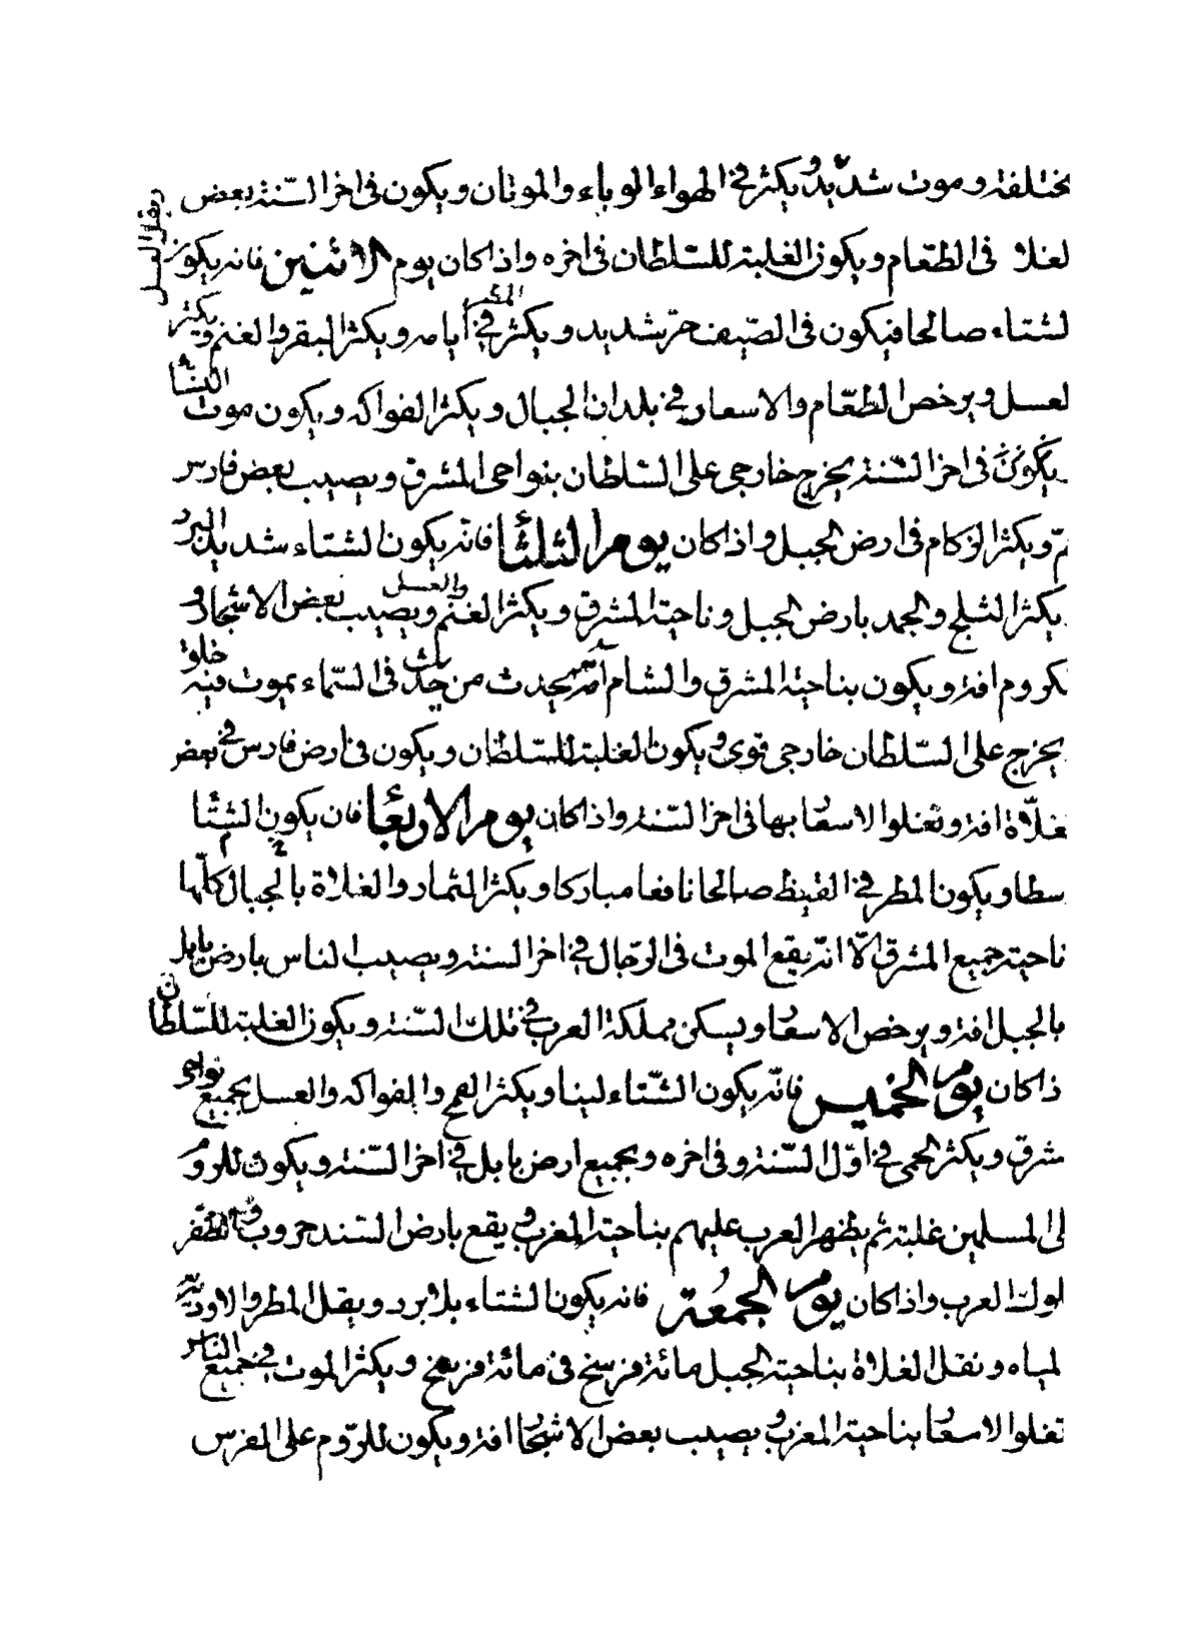 مختلفة وموت شديد ويكثر في الهواء الوباء والموتان ويكون في اخر السّنة بعض
ويقل العسل
لغلا في الطّعام ويكون الغلبة للسّلطان في اخره واذا كان يوم الاثنين فانه يكون
لشتاء صالحا فيكون في الصّيف حرّ شديد ويكثر المطر في ايامه ويكثر البقر والغنم ويكثر
لعسل ويرخص الطّعام والاسعار في بلدان الجبال ويكثر الفواكه ويكون موت النسا
يكون في اخر السّنة يخرج خارجي على السّلطان بنواحي المشرق ويصيب بعض فارس
مّ ويكثر الزكام في ارض الجبل واذا كان يوم الثلثا فانّه يكون الشتاء شديد البرد
يكثر الثلج والجمد بارض الجبل وناحية المشرق ويكثر الغنم والعسل ويصيب بعض الاشجار و
لكروم افة ويكون بناحية المشرق والشام افة يحدث من حدث في السّماء يموت فيه خلق
يخرج على السّلطان خارجي قوى ويكون الغلبة للسّلطان ويكون في ارض فارس في بعض
لغلّاة افة وتغلوا الاسعار بها في اخر السّنة واذا كان يوم الاربعا فان يكون الشتا
سطا ويكون المطر في القيظ صالحا نافعا مباركا ويكثر الثمار والغلاة بالجبال كلّها
ناحية جميع المشرق الّا انّه يقع الموت في الرّجال في اخر السنة ويصيب الناس بارض بابل
بالجبل افة ويرخص الاسعار ويسكن مملكة العرب في تلك السّنة ويكون الغلبة للسّلطان
ذا كان يوم الخميس فانّه يكون الشّتاء لينا ويكثر القمح والفواكه والعسل بجميع نواحي
شرق ويكثر الحمى في اوّل السّنة وفي اخره وبجميع ارض بابل في اخر السّنة ويكون للروم
لى المسلمين غلبة ثم يظهر العرب عليهم بناحية المغرب ويقع بارض السّند حروب والظّفر
لوك العرب واذا كان يوم الجمعة فانه يكون الشتاء بلا برد ويقل المطر والاودية
لمياه وتقل الغلاة بناحية الجبل مائة فرسخ في مائة فرسخ ويكثر الموت في جميع الناس
تغلوا الاسعار بناحية المغرب ويصيب بعض الاشجار افة ويكون للرّوم على الفرس